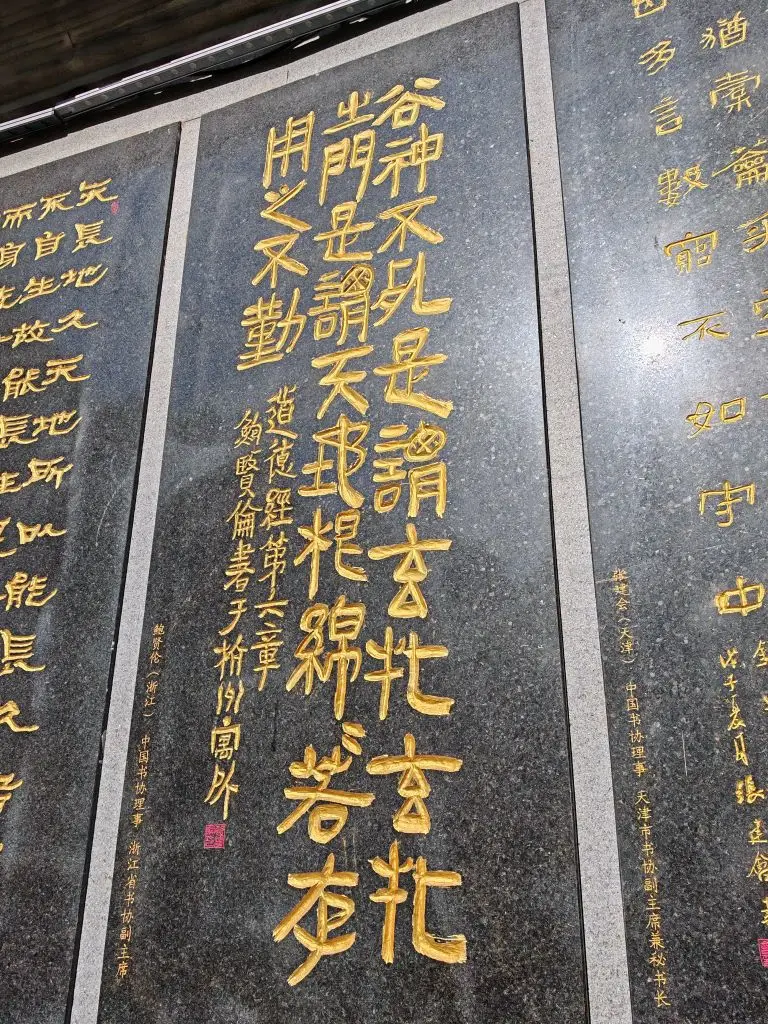 猶橐籥乎
多言數窮不如守中
戊子夏月張建會書
张建会（天津） 中国书协理事 天津市书协副主席兼秘书长
谷神不死是謂玄牝玄牝
之門是謂天地根綿〻若存
用之不勤
道德經第六章
鮑賢倫書于杭州寓
鲍贤伦（浙江） 中国书协理事 浙江省书协副主席
天長地久天地所以能長久
不自生故能長生
而身